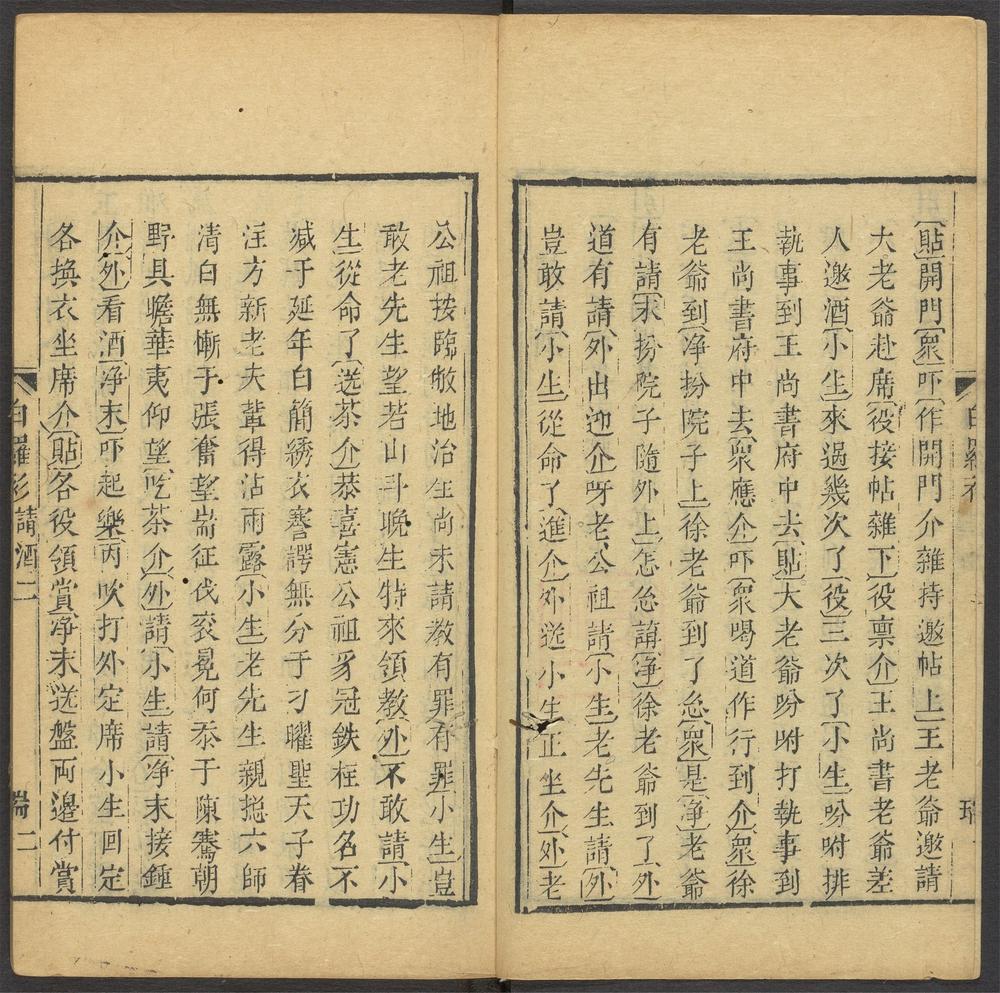 貼開門衆吓作開門介雜持邀帖上王老爺邀請
大老爺赴席役接帖雜下役禀介王尚書老爺差
人邀酒小生來過幾次了役三次了小生吩咐排
執事到王尚書府中去貼大老爺吩咐打執事到
王尚書府中去衆應介吓衆喝道作行到介衆徐
老爺到淨扮院子上徐老爺到了怎衆是淨老爺
有請末扮院子隨外上怎怎講淨徐老爺到了外
道有請外出迎介呀老公祖請小生老先生請外
豈敢請小生從命了進介外送小生正坐介外老
公祖按臨敝地治生尚未請教有罪有罪小生豈
敢老先生望若山斗晚生特來領教外不敢請小
生從命了送茶介恭喜憲公祖豸冠鉄柱功名不
减于延年白簡綉衣謇諤無分于刁曜聖天子眷
注方新老夫輩得沾雨露小生老先生親㧾六師
清白無慚于張奮望耑征伐衮冕何忝于陳騫朝
野具瞻華夷仰望吃茶介外請小生請淨末接鍾
介外看酒淨末吓起樂丙吹打外定席小生回定
各換衣坐席介貼各役領賞淨末送盤両邊付賞
白羅衫 請酒 二